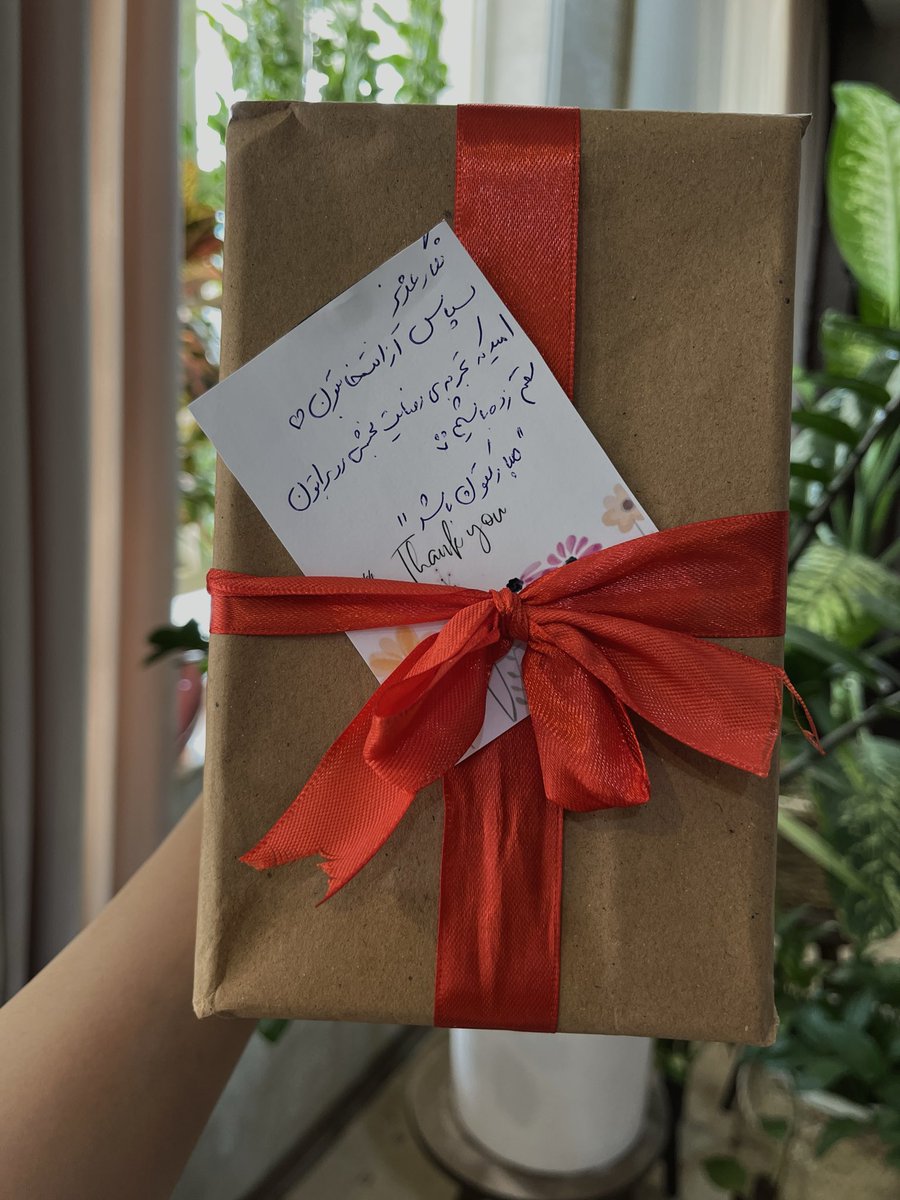 نگار عزیز
سپاس از انتخابتون ♡
امیدوارم تجربه‌ی رضایت بخشی رو براتون
رقم زده باشیم ♡
Thank you